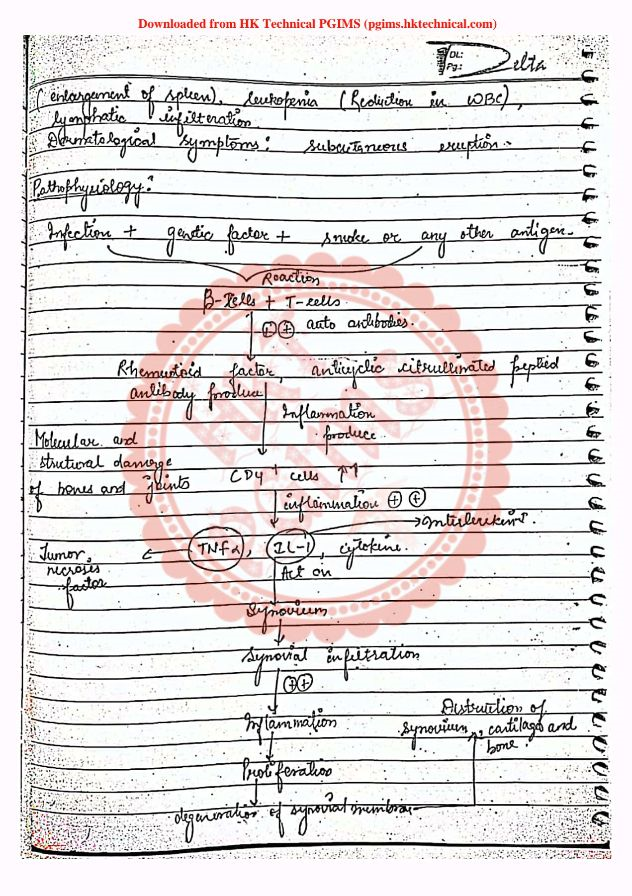 Downloaded from HK Technical PGIMS (pgims.hktechnical.com)
DL:
Pg.:
Delta
(enlargement of spleen), leukopenia (Reduction in WBC),
lymphatic infilteration
Dermatological symptoms: subcutaneous eruption.
Pathophysiology:
Infection + genetic factor + smoke or any other antigen.
Reaction
B-cells + T-cells
⊕ ⊕ auto antibodies.
Rhemuotoid factor, anticyclic citrullinated peptied
antibody produce
Inflammation
produce
Molecular and
strutural damage
of bones and joints
CD4+ cells ↑↑
inflammation ⊕ ⊕
→Interleukin 1.
TNFα, IL-1, cytokine.
Tumor
necrosis
factor
Act on
Synovium
Synovial infiltration
⊕⊕
Inflammation
Distruction of
synovium, cartilage and
bone.
Proliferation
degeneration of synovial membrae